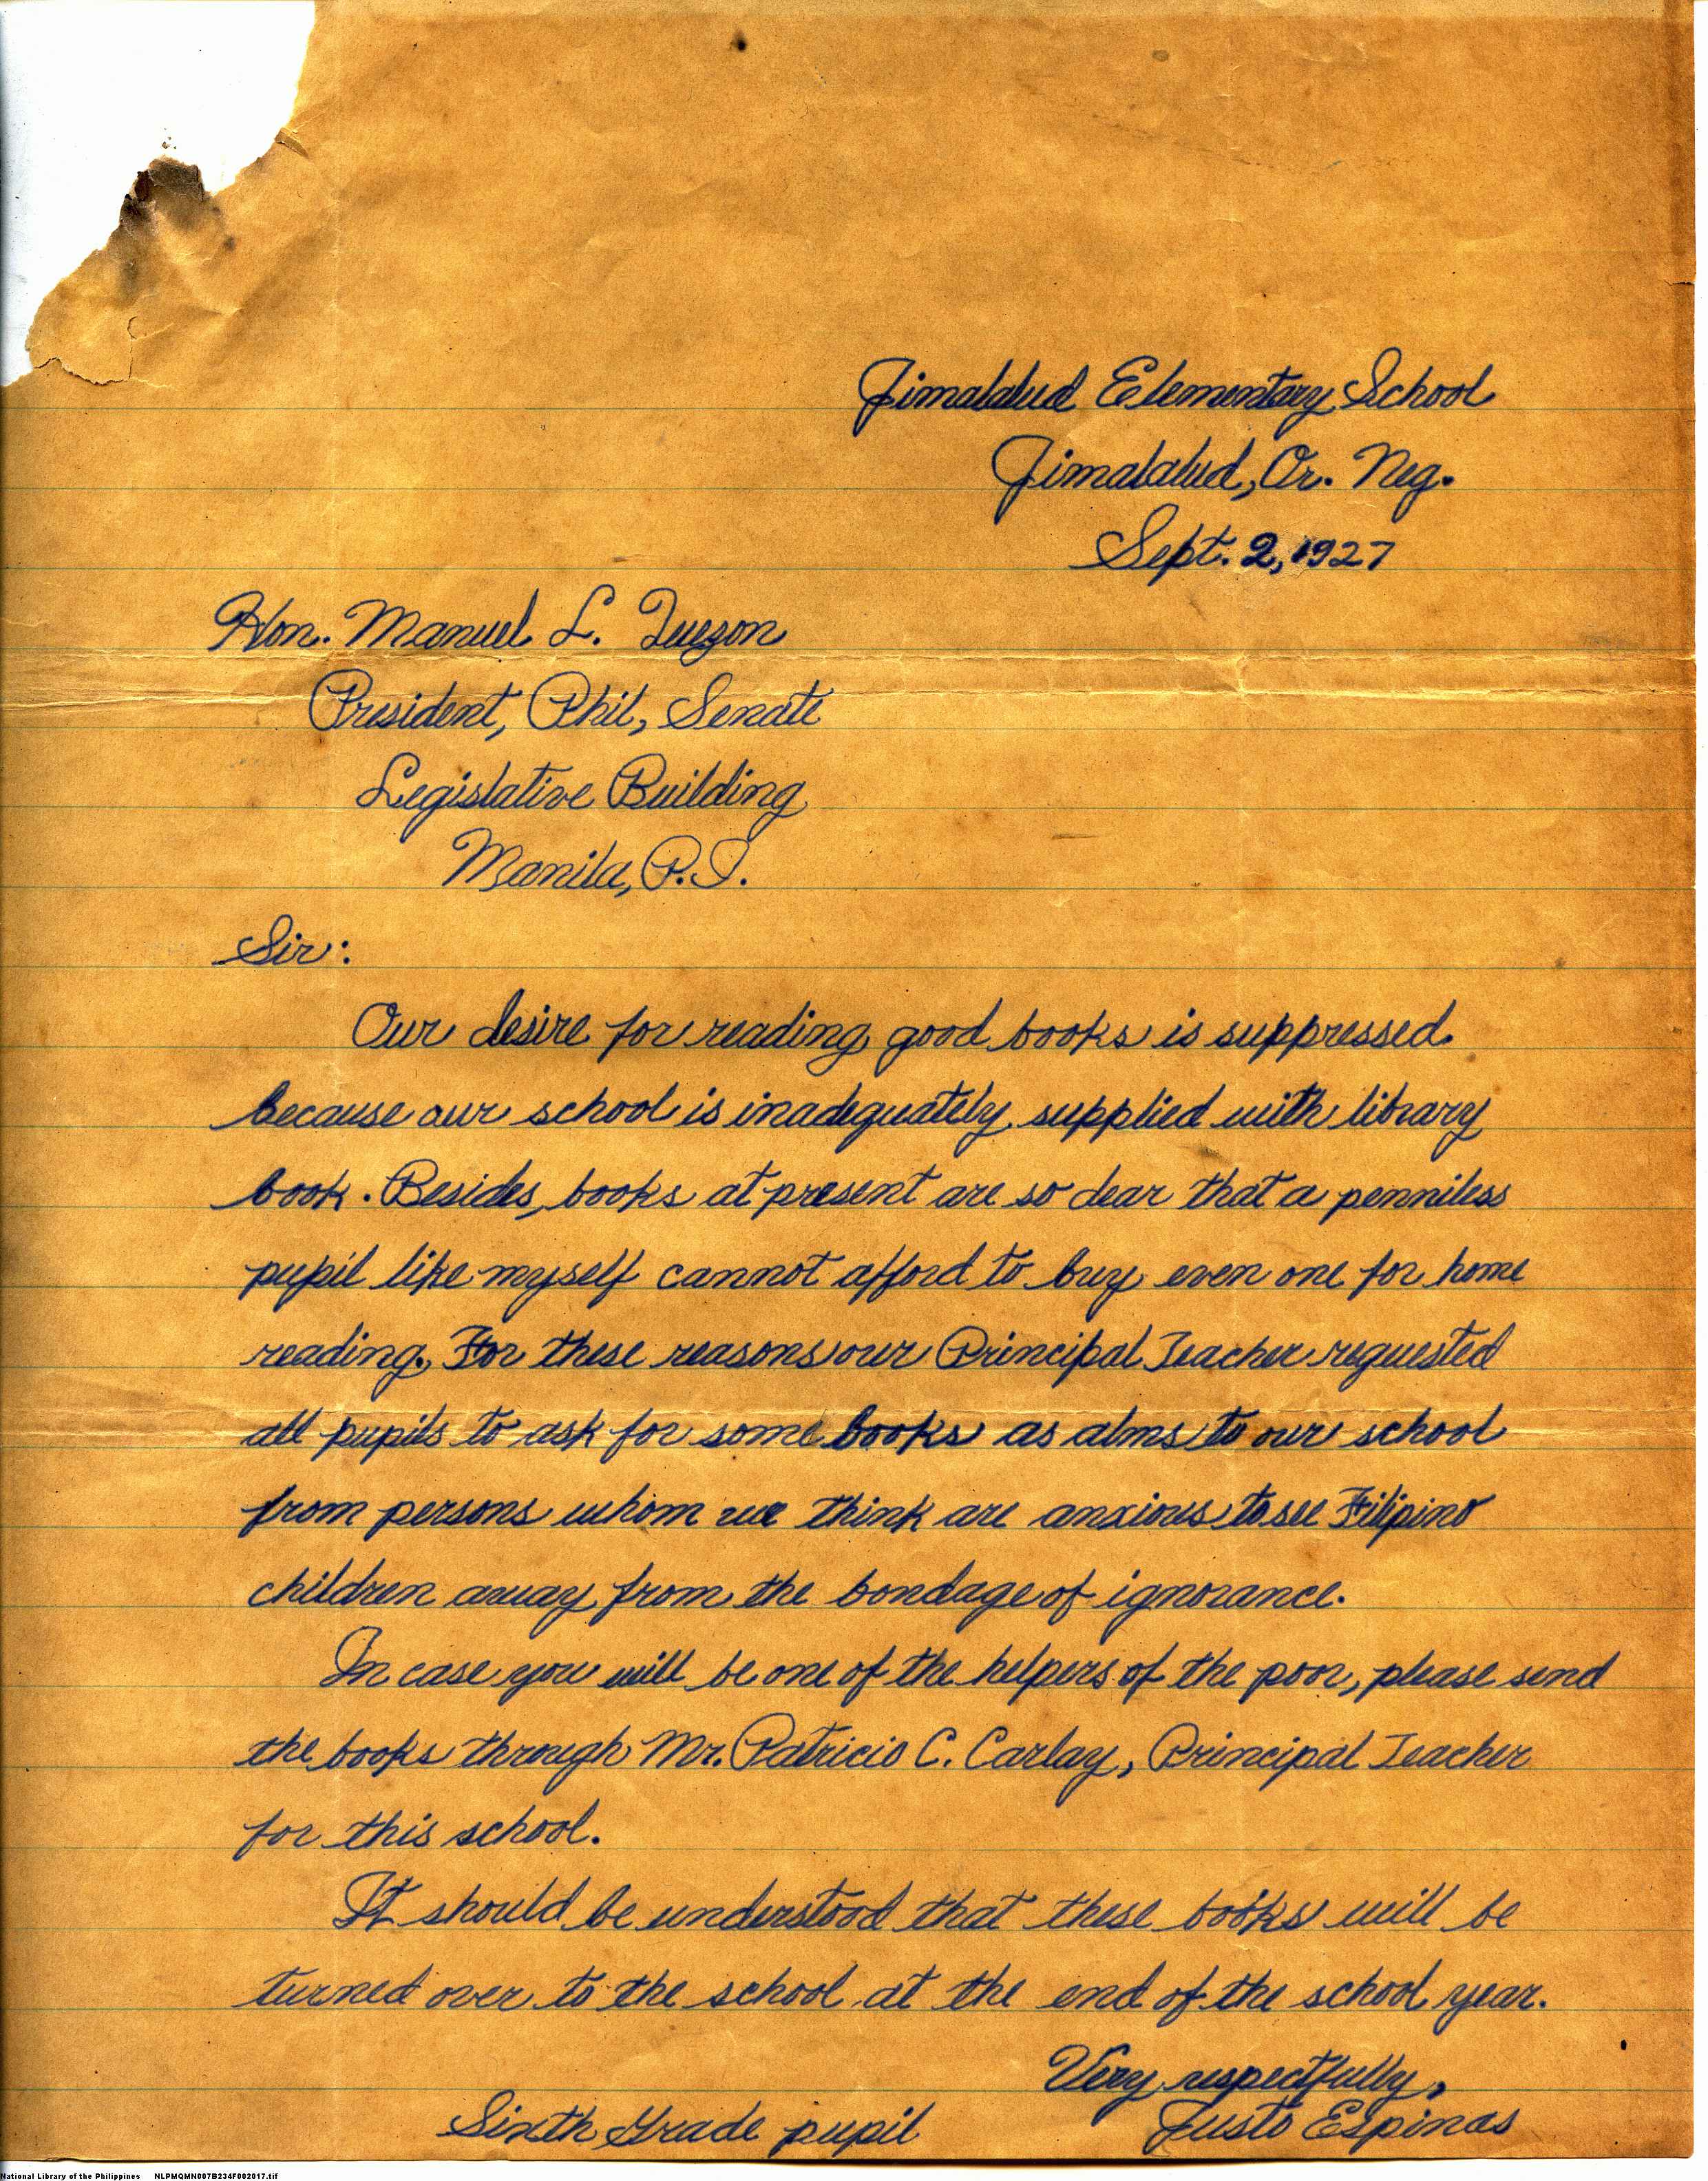 Jimalalud Elementary School
Jimalalud, Or. Neg.
Sept. 2, 1927
Hon. Manuel L. Quezon
President, Phil, Senate
Legislative Building
Manila, P.I.
Sir:
Our desire for reading good books is suppressed
because our school is inadequately supplied with library
book. Besides, books at present are so dear that a penniless
pupil like myself cannot afford to buy even one for home
reading. For these reasons our Principal Teacher requested
all pupils to ask for some books as alms to our school
from persons whom we think are anxious to see Filipino
children away from the bondage of ignorance.
In case you will be one of the helpers of the poor, please send
the books through Mr. Patricio C. Carlay, Principal Teacher
for this school.
It should be understood that these books will be
turned over to the school at the end of the school year.
Very respectfully,
Sixth Grade pupil Justo Espinas
National Library of the Philippines NLPMQMN007B234F002017.tif